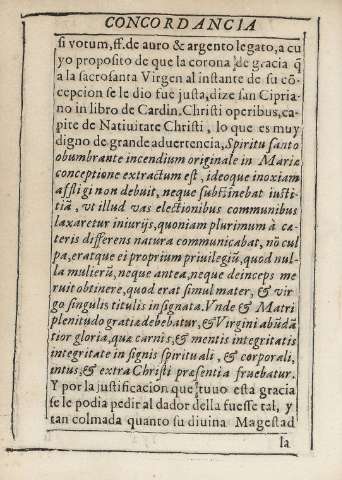 CONCORDANCIA
si votum, ff. de auro & argento legato, a cu
yo proposito de que la corona de gracia q̃
a la sacrosanta Virgen al instante de su cõ
cepcion se le dio fue justa, dize san Cipria
no in libro de Cardin. Christi operibus, ca-
pite de Natiuitate Christi, lo que es muy
digno de grande aduertencia, Spiritu santo
obumbrante incendium originale in Mariæ
conceptione extractum est, ideoque inoxiam
affligi non debuit, neque subtinebat iusti-
tiã, vt illud vas electionibus communibus
laxaretur iniurijs, quoniam plurimum à cæ-
teris differens natura communicabat, nõ cul
pa, eratque ei proprium priuilegiũ, quod nul-
la mulierũ, neque antea, neque deinceps me
ruit obtinere, quod erat simul mater, & vir
go singulis titulis insignata. Vnde & Matri
plenitudo gratiæ debebatur, & Virgini abũdã
tior gloria, quæ carnis, & mentis integritatis
integritate in signis spirituali, & corporali,
intus, & extra Christi præsentia fruebatur.
Y por la justificacion que tuuo esta gracia
se le podia pedir al dador della fuesse tal, y
tan colmada quanto su diuina Magestad
la